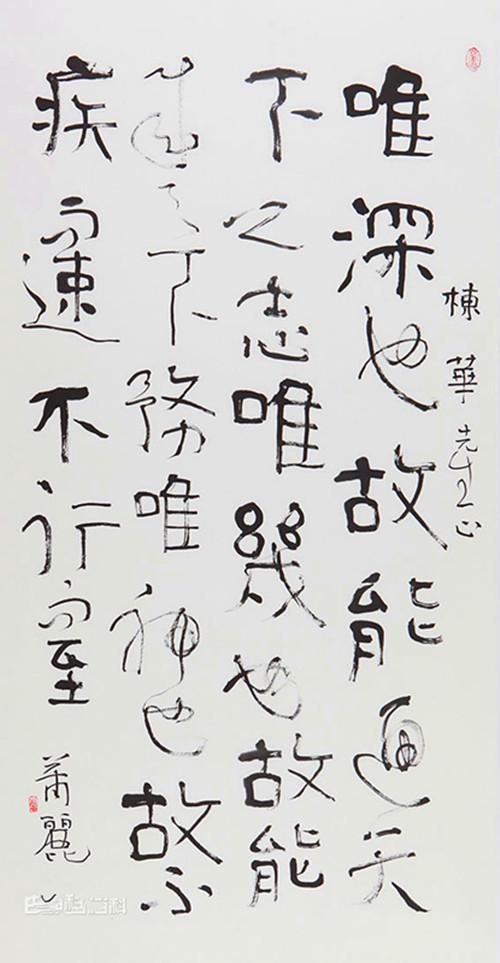 棟華先生正
唯深也故能通天
下之志唯幾也故能
成天下務唯神也故不
疾而速不行而至
蕭麗